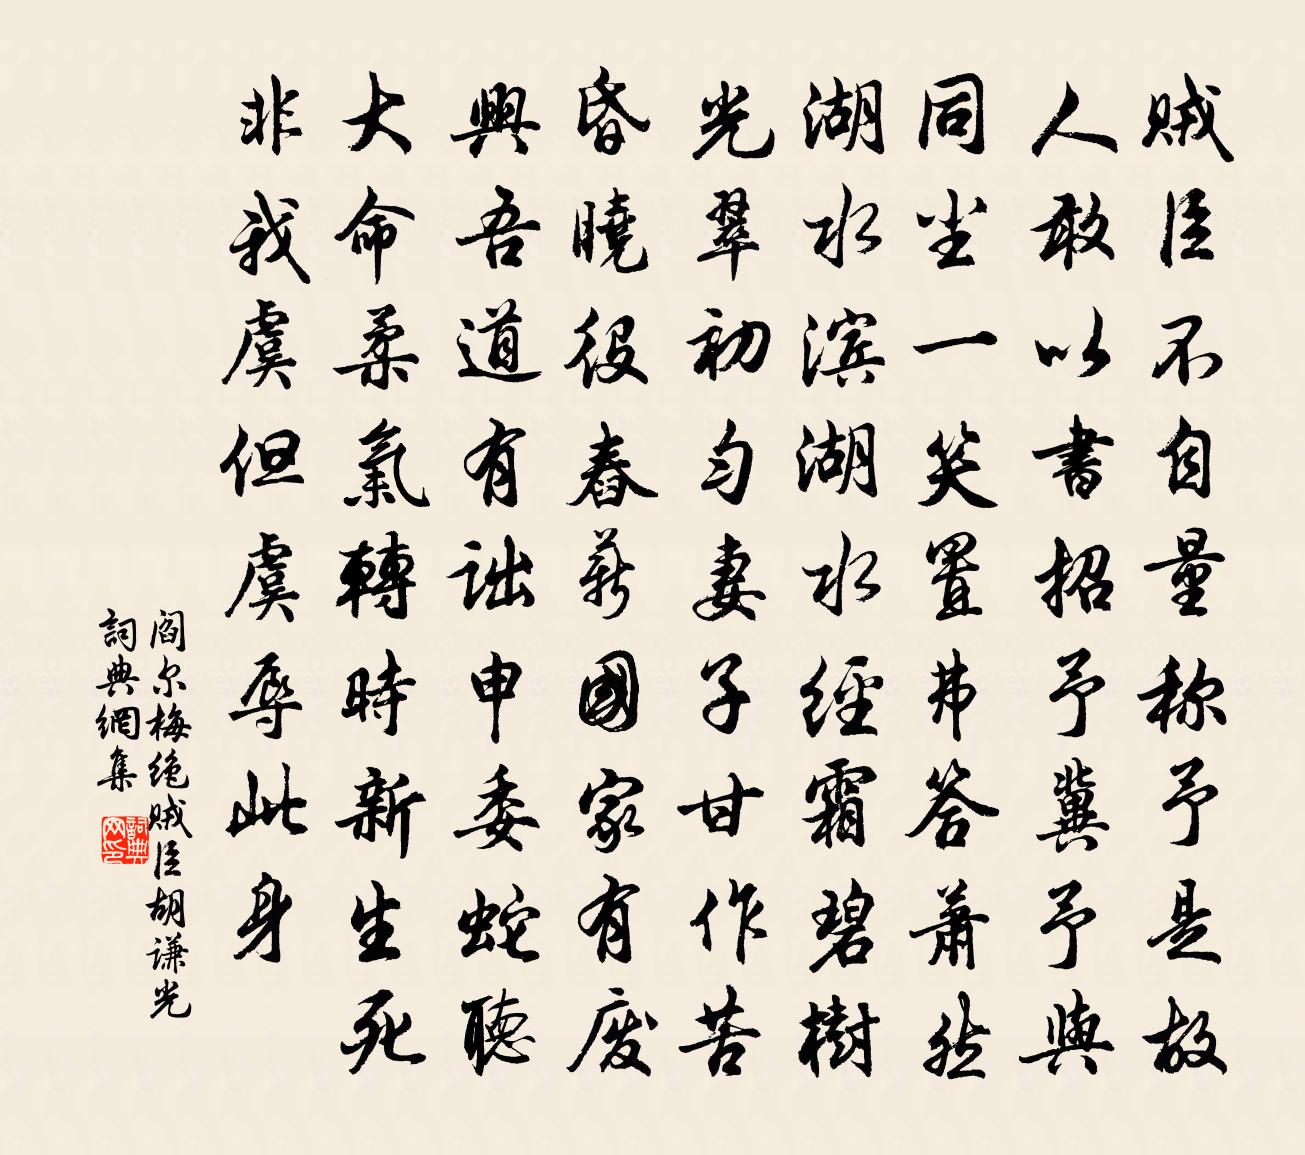 贼臣不自量称予是故
人敢以書招予冀予與
同坐一笑置弗答萧然
湖水滨湖水經霜碧樹
光翠初匀妻子甘作苦
昏曉役舂薪國家有废
興吾道有詘申委蛇聽
大命柔氣轉時新生死
非我虞但虞辱此身
阎尔梅绝贼臣胡谦光
詞典網集
詞典網印